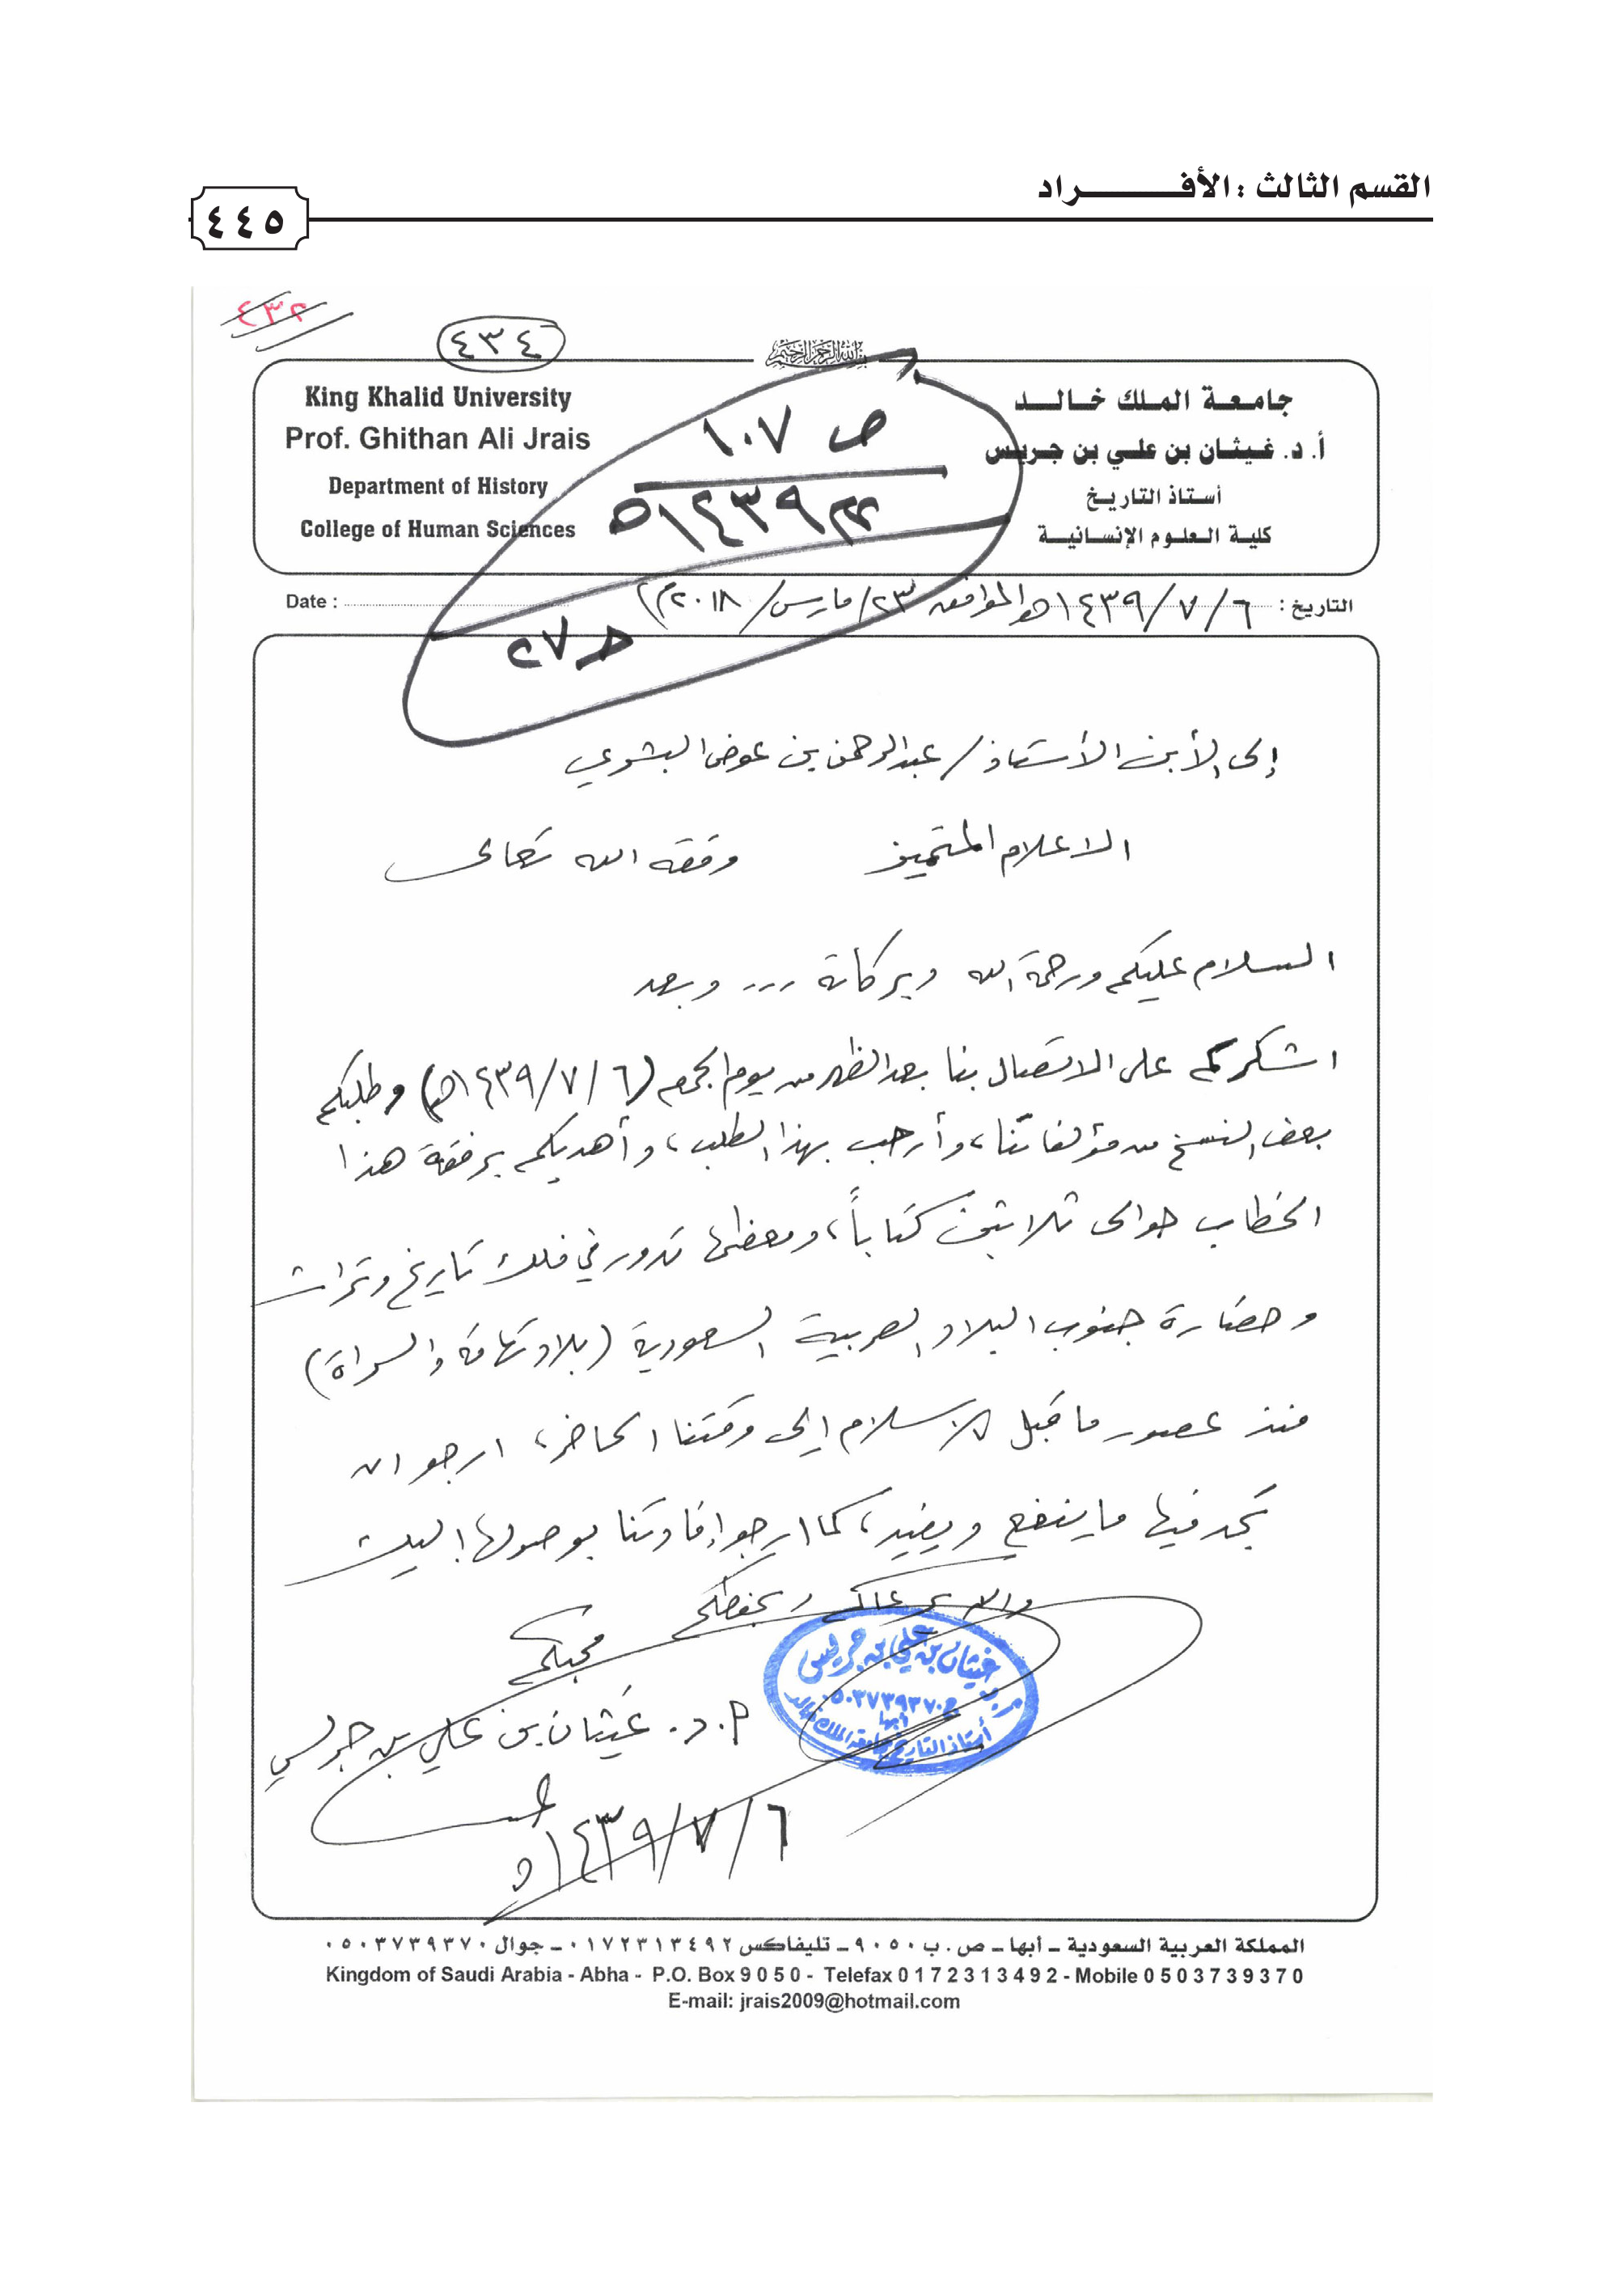 القسم الثالث : الأفـــــــراد
٤٤٥
٤٣٢
٤٣٤
بسم الله الرحمن الرحيم
King Khalid University
Prof. Ghithan Ali Jrais
Department of History
College of Human Sciences
جامعة الملك خالد
أ. د. غيثان بن علي بن جريس
أستاذ التاريخ
كلية العلوم الإنسانية
ص ١٠٧
١٤٣٩هـ
ح ٢٧
Date :
التاريخ : ٦ / ٧ / ١٤٣٩هـ الموافق ٢٣/ مارس/ ٢٠١٨م
إلى الأبن الأستاذ / عبدالرحمن بن عوض البشري
الاعلام المتميز وفقه الله تعالى
السلام عليكم ورحمة الله وبركاته ... وبعد
اشكركم على الاتصال بنا بعد الظهر من يوم الجمعه (٦ / ٧ / ١٤٣٩هـ) وطلبكم
بعض النسخ من مؤلفاتنا، وأرحب بهذا الطلب، وأهديكم برفقة هذا
الخطاب حوالى ثلاثين كتاباً، ومعظمها تدور في فلك تاريخ وتراث
وحضارة جنوب البلاد العربية السعودية (بلاد تهامة والسراة)
منذ عصور ما قبل الاسلام إلى وقتنا الحاضر، ارجو ان
تجد فيها ما ينفع ويفيد، كما ارجو إفادتنا بوصولها إليك
والله يرعاكم ويحفظكم
محبكم
أ. د. غيثان بن علي بن جريس
غيثان بن علي بن جريس
ج ٠٥٠٣٧٣٩٣٧٠
أبها
أستاذ التاريخ بجامعة الملك خالد
٦ / ٧ / ١٤٣٩هـ
المملكة العربية السعودية ـ أبها ـ ص . ب ٩٠٥٠ ـ تليفاكس ٠١٧٢٣١٣٤٩٢ ـ جوال ٠٥٠٣٧٣٩٣٧٠
Kingdom of Saudi Arabia - Abha - P.O. Box 9 0 5 0 - Telefax 0 1 7 2 3 1 3 4 9 2 - Mobile 0 5 0 3 7 3 9 3 7 0
E-mail: jrais2009@hotmail.com